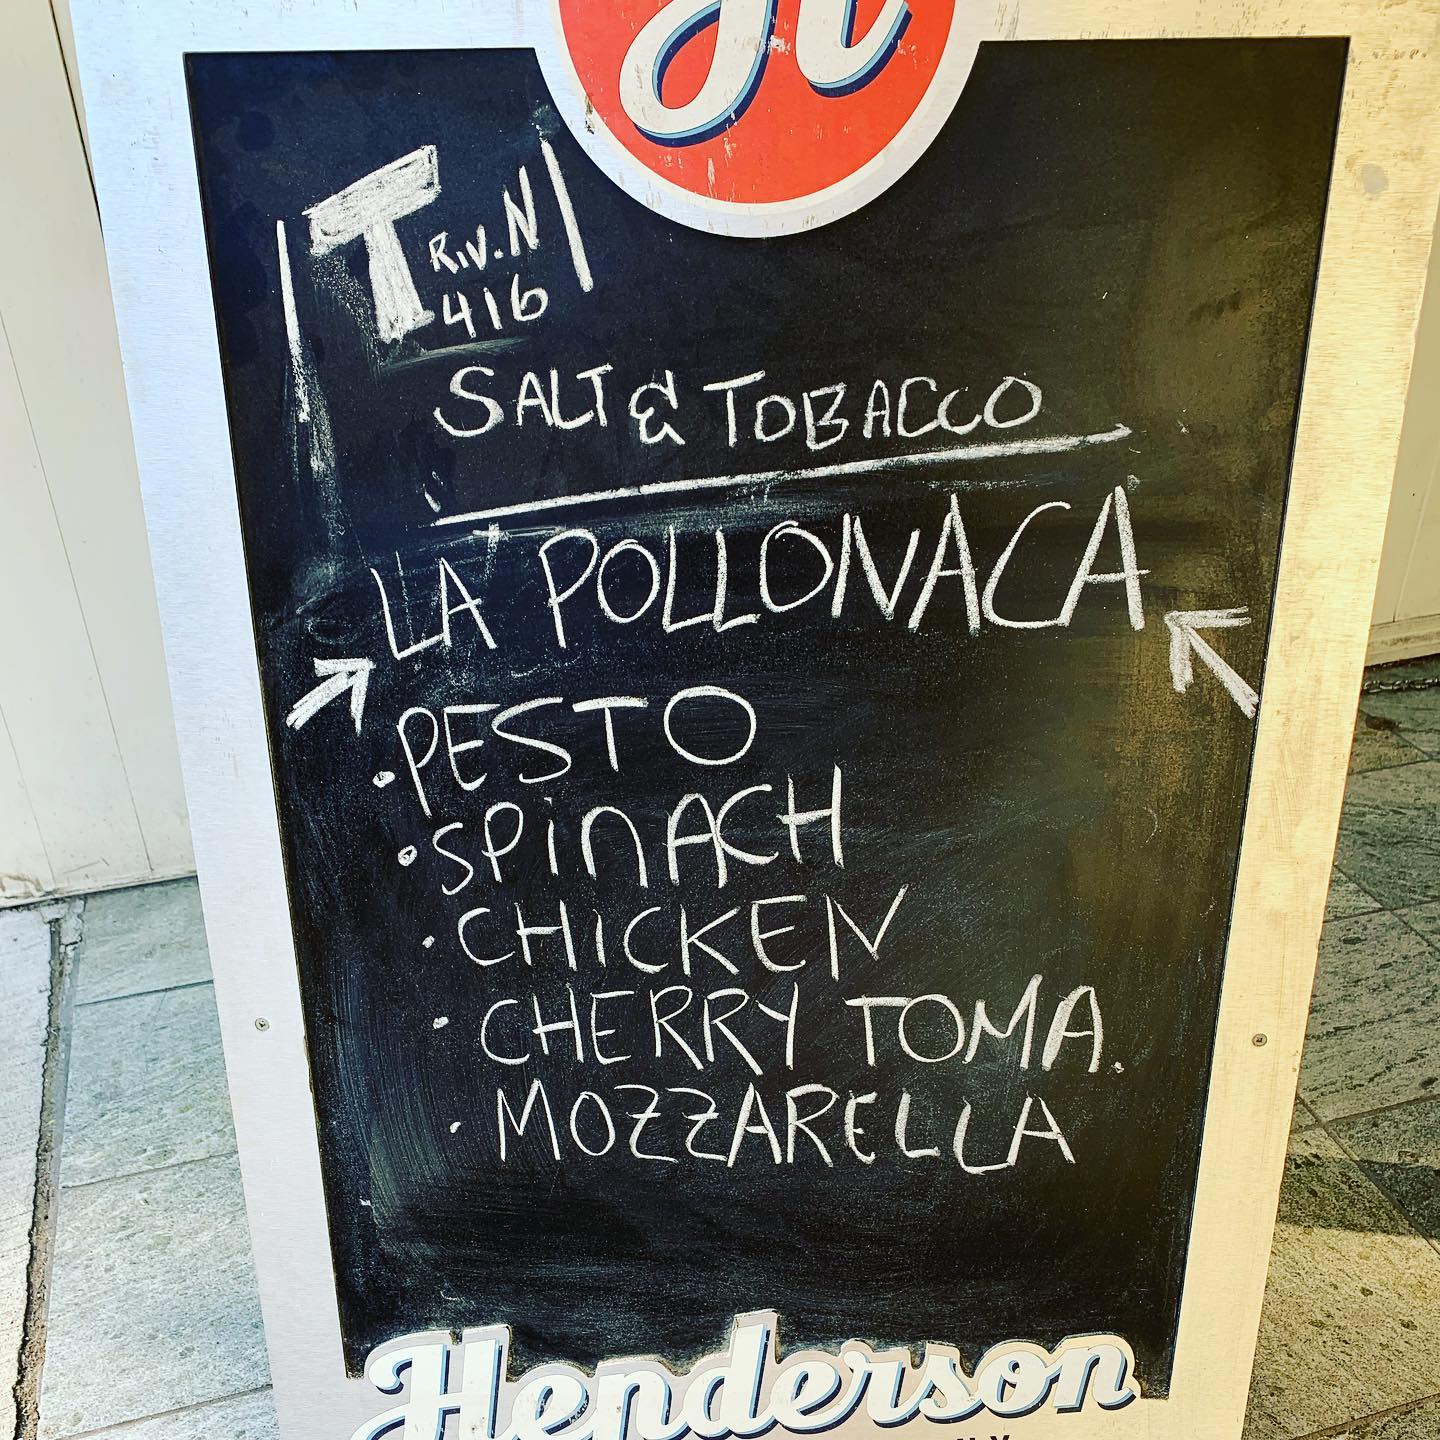 H
TRIV.N
416
SALT & TOBACCO
LA POLLONACA
· PESTO
· SPINACH
· CHICKEN
· CHERRY TOMA.
· MOZZARELLA
Henderson